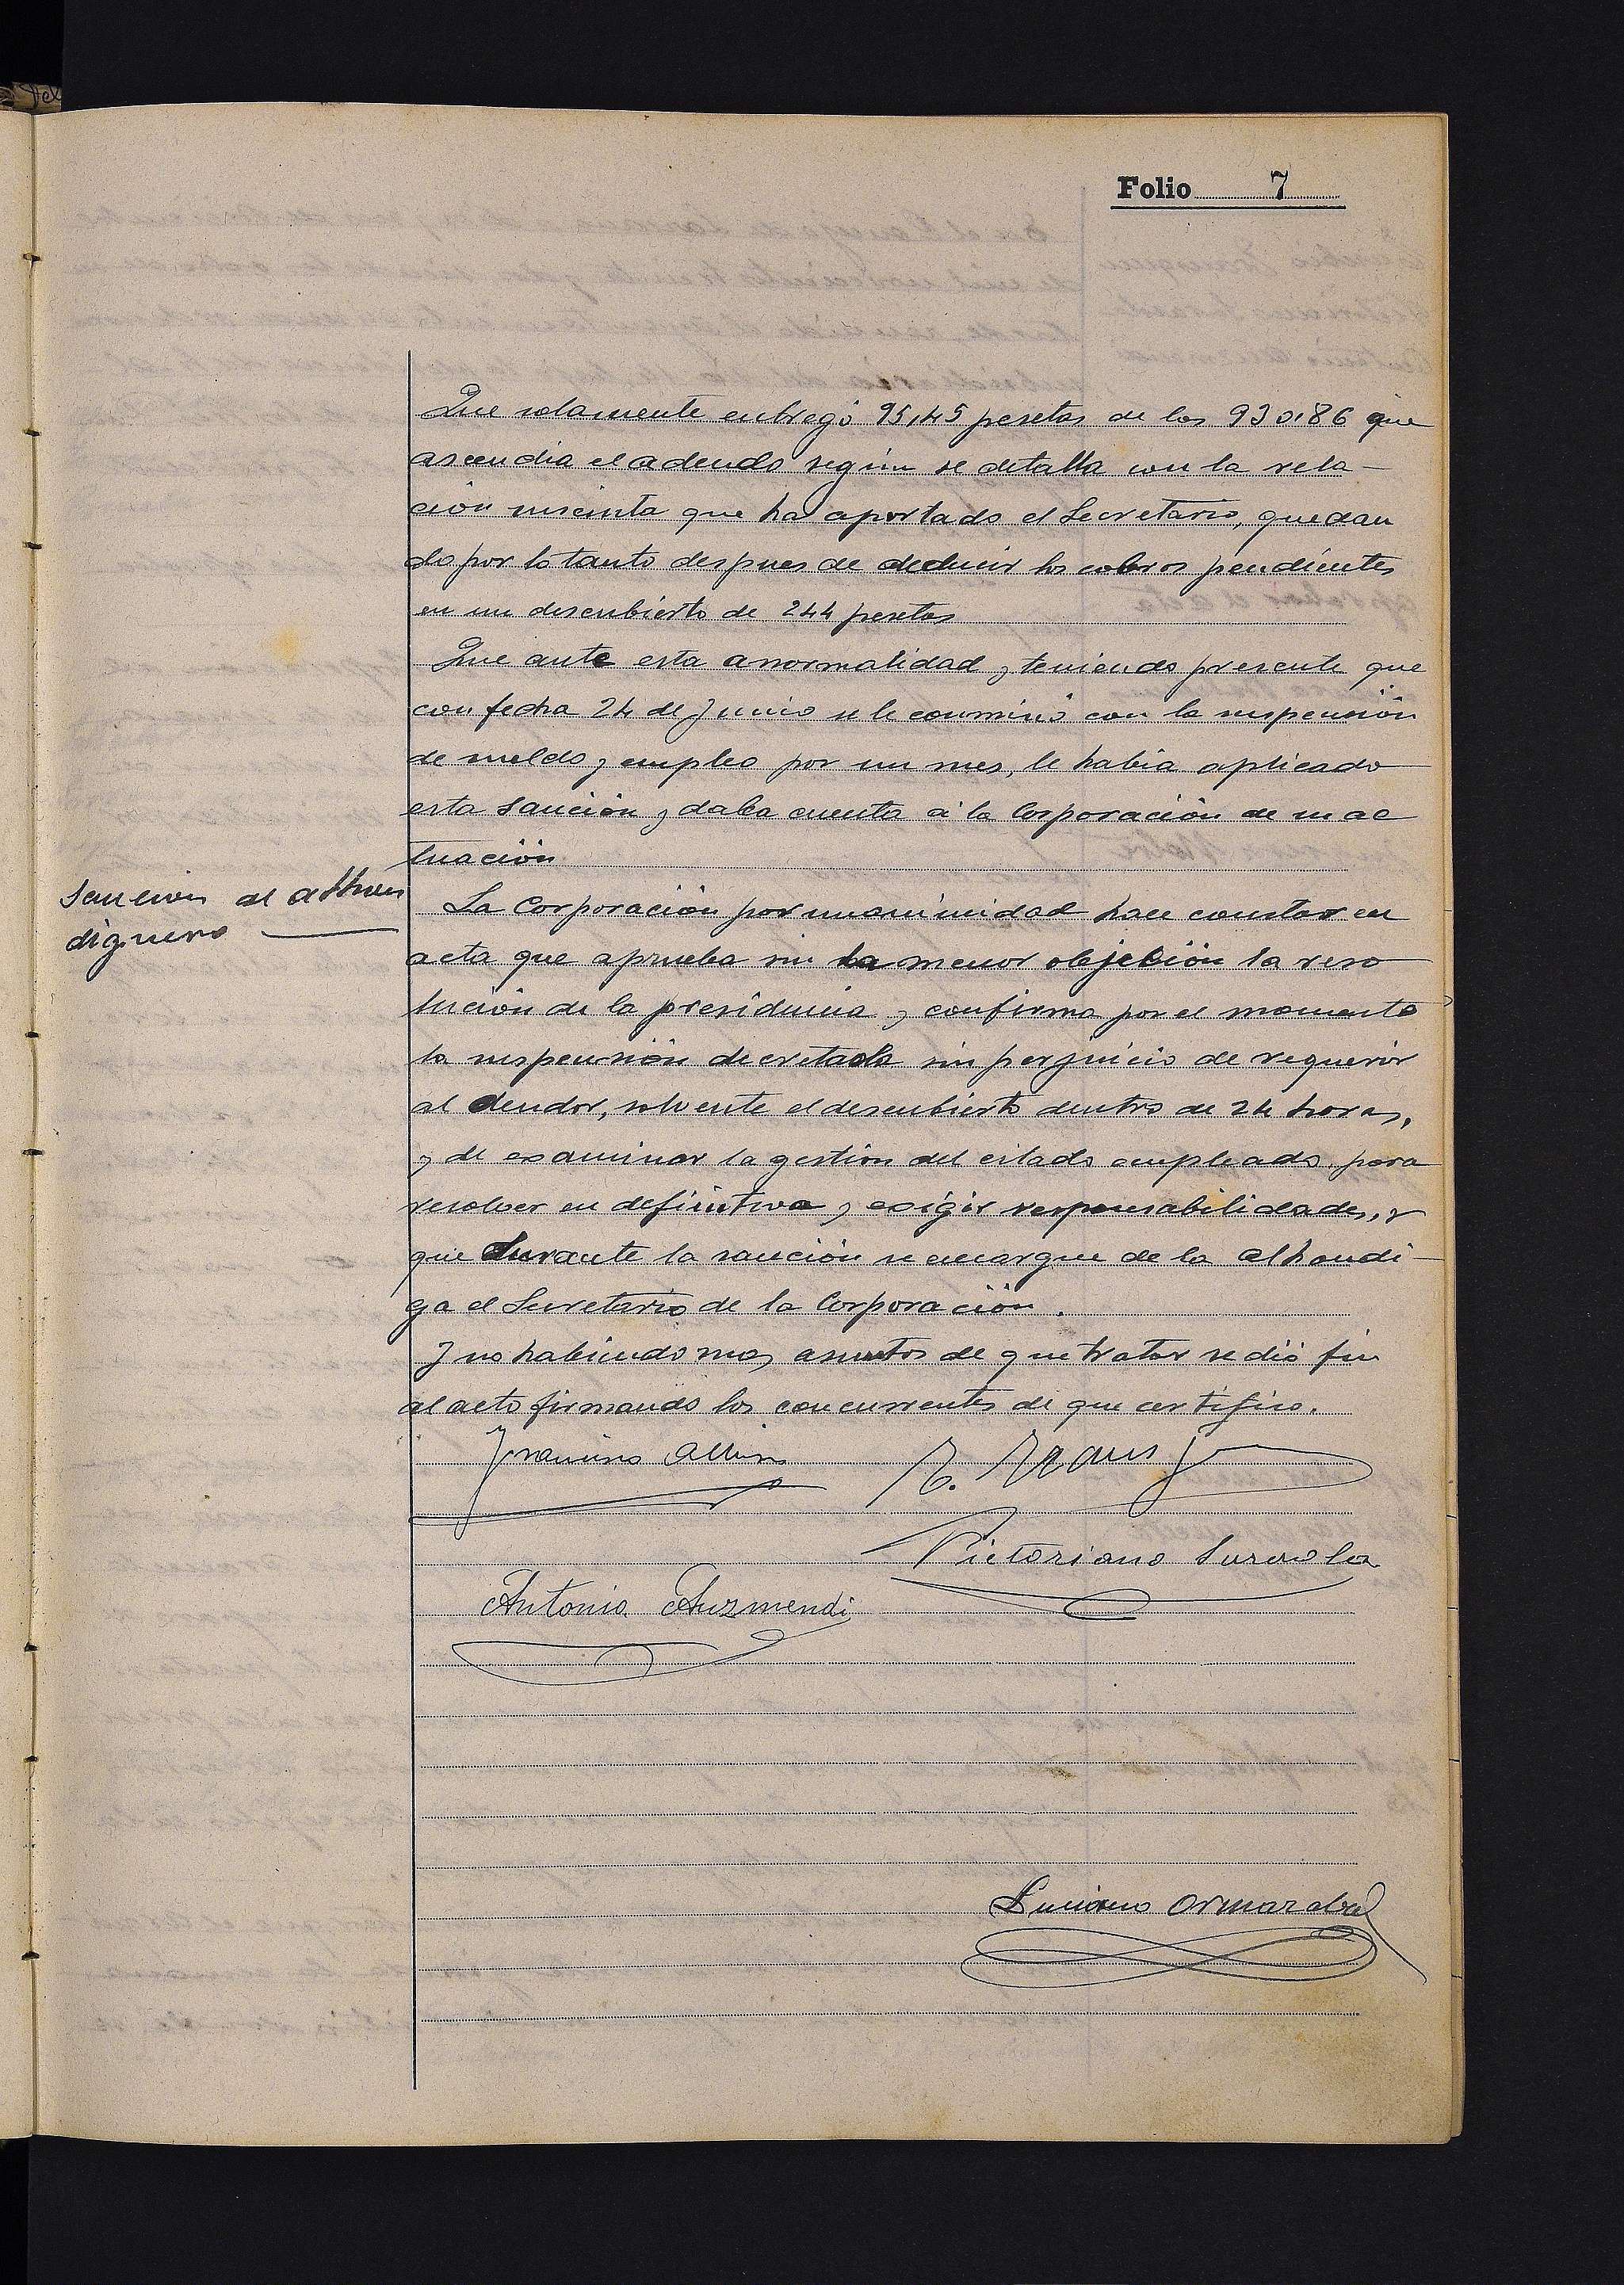 Folio 7
Que solamente entregó 95,45 pesetas de las 930,86 que
ascendia el adeudo según se detalla con la rela-
ción suscinta que ha aportado el Secretario, quedan
do por lo tanto despues de deducir los cobros pendientes
en un descubierto de 244 pesetas
Que ante esta anormalidad y teniendo presente que
con fecha 24 de Junio se le conminó con la suspensión
de sueldo y empleo por un mes, le habia aplicado
esta sanción y daba cuenta á la Corporación de su ac
tuación
Sancion al alhon
diguero
La Corporación por unanimidad hace constar en
acta que aprueba sin la menor objeción la reso
lución de la presidencia y confirma por el momento
la suspensión decretada sin perjuicio de requerir
al deudor, solvente el descubierto dentro de 24 horas,
y de examinar la gestion del citado empleado para
resolver en definitiva y exigir responsabilidades, y
que durante la sanción se encargue de la alhondi-
ga el Secretario de la Corporación.
Y no habiendo mas asuntos de que tratar se dió fin
al acto firmando los concurrentes de que certifico.
Victoriano Surcola
Antonio Auzmendi
Luciano Ormazabal